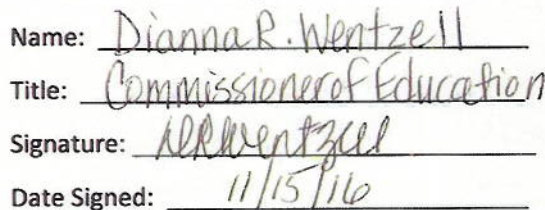 Name: Dianna R. Wentzell
Title: Commissioner of Education
Signature: DRWentzell
Date Signed: 11/15/16